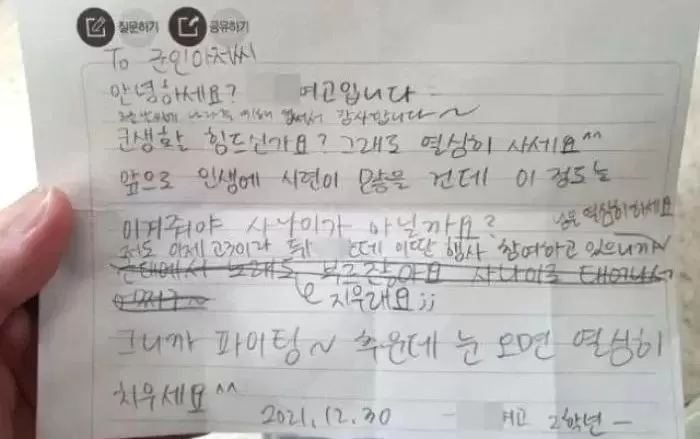 질문하기 공유하기
To 군인아저씨
안녕하세요? 여고입니다
나라를 위해 감사합니다~
군생활 힘드신가요? 그래도 열심히 사세요^^
앞으로 인생에 시련이 많을 건데 이 정도는
이겨줘야 사나이가 아닐까요?
저도 이제 고3이라 뒤 텐데 이딴 행사 참여하고 있으니까~
군대에서 노래도 부르잖아요 사나이로 태어나서
어쩌구~
지우래요;;
그니까 파이팅~ 추운데 눈 오면 열심히
치우세요^^
2021.12.30 - 여고 2학년 -